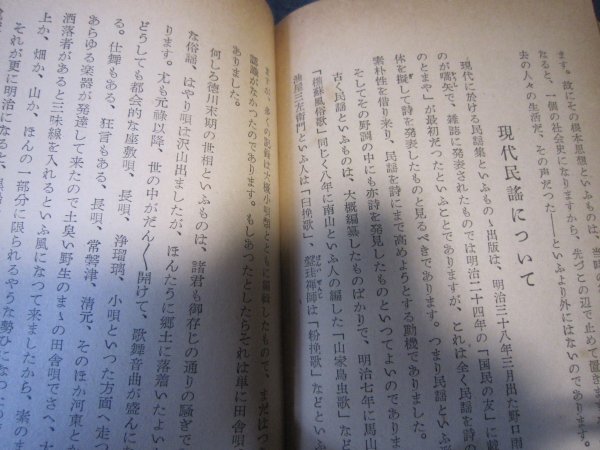 ます。故にその根本思想といふもの
なると、一個の社会史になりますから、先づこの辺で止めて置きます
夫の人々の生活だ、その声だつた――といふより外にはないのであ
現代民謡について
現代に於ける民謡集といふものゝ出版は、明治三十八年三月出た野口雨
のが嚆矢で、雑誌に発表されたものでは明治二十四年の「国民の友」に
のとまや」が最初だつたといふことでありますが、これは全く民謡を詩の
体を擬して詩を発表したものと見るべきであります。つまり民謡といふ
素朴性を借り来り、民謡を詩にまで高めようとする動機でありました。
そしてその野調の中にも亦詩を発見したものといつてよいのでありま
古く民謡といふものは、大概編纂したものばかりで、明治七年に馬山
「潮蘇風俗歌」同じく八年に南山といふ人の編した「山家鳥虫歌」など
衛門といふ人は「臼挽歌」、禅師は「粉挽歌」などとい
大概小唄とともに編輯したもので、まだはつ
認識がなかつたのであります。もしあつたとしたらそれは単に田舎唄
ありました。
何しろ徳川末期の世相といふものは、諸君も御存じの通りの騒ぎで
な俗謡、はやり唄は沢山出ましたが、ほんたうに郷土に落着いたよい
ります。尤も元禄以降、世の中がだん〳〵開けて、歌舞音曲が盛んに
どうしても都会的な座敷唄、長唄、浄瑠璃、小唄といつた方面へ走つ
る。仕舞もある、狂言もある、長唄、常磐津、清元、そのほか河東とか
あらゆる楽器が発達して来たので土臭い野生のまゝの田舎唄でさへ、大
洒落者があると三味線を入れるといふ風になつて来ましたから、素のま
上か、畑か、山か、ほんの一部分に限られるやうな勢ひになつたの
それが更に明治になると、